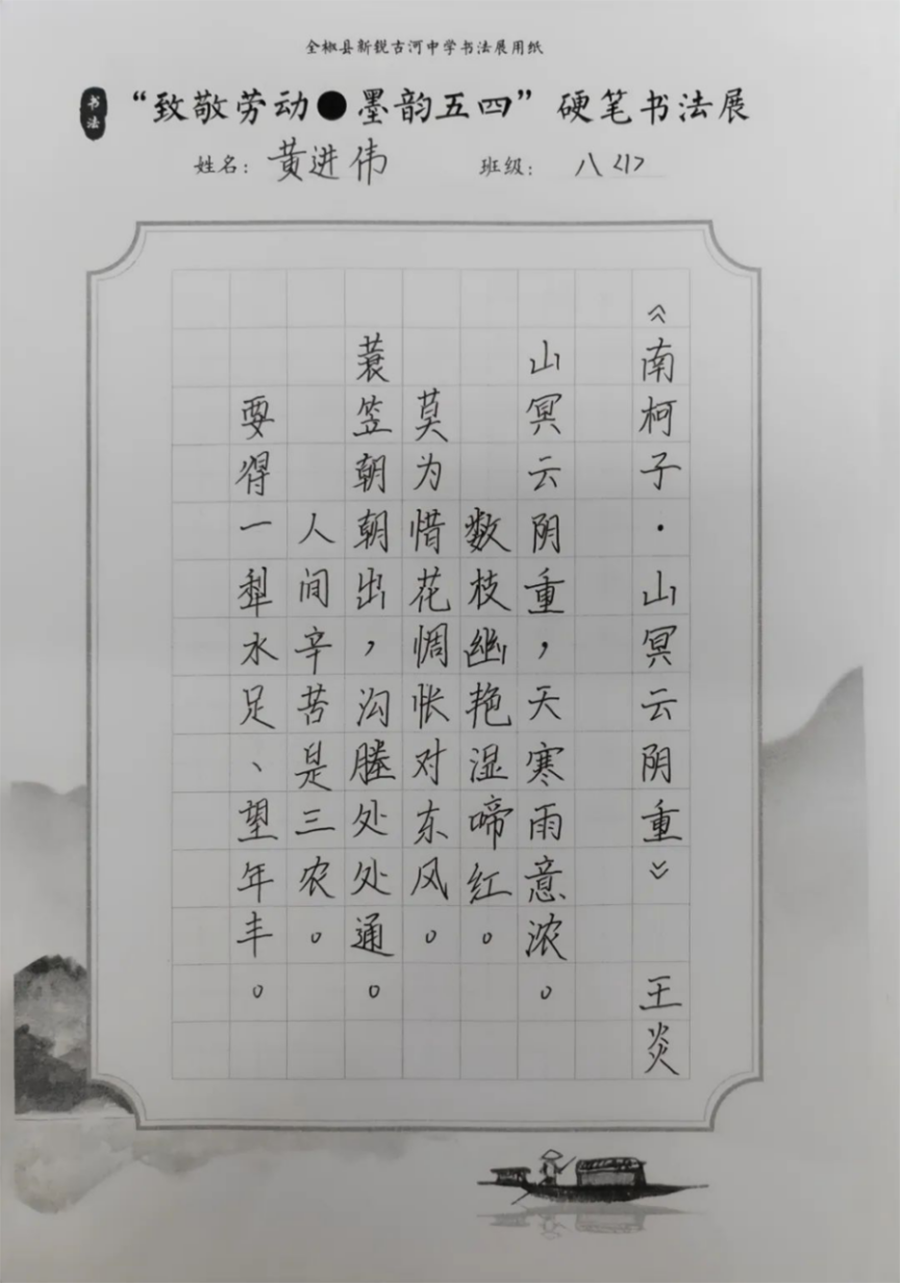 全椒县新锐古河中学书法展用纸
书法
“致敬劳动●墨韵五四”硬笔书法展
姓名：黄进伟 班级：八〈1〉
《南柯子·山冥云阴重》 王炎
山冥云阴重，天寒雨意浓。
数枝幽艳湿啼红。
莫为惜花惆怅对东风。
蓑笠朝朝出，沟塍处处通。
人间辛苦是三农。
要得一犁水足、望年丰。